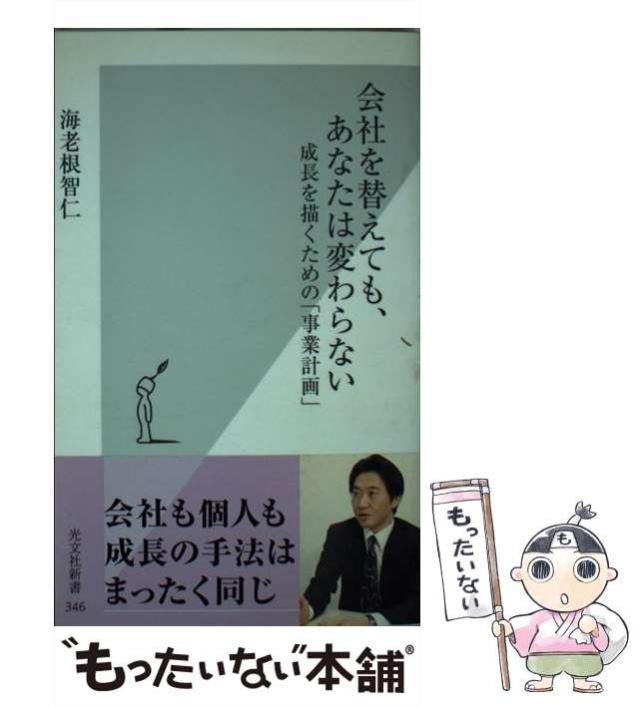 会社を替えても、
あなたは変わらない
成長を描くための「事業計画」
海老根智仁
会社も個人も
成長の手法は
まったく同じ
光文社新書
346
"もったいない"本舗®
もったいない
も